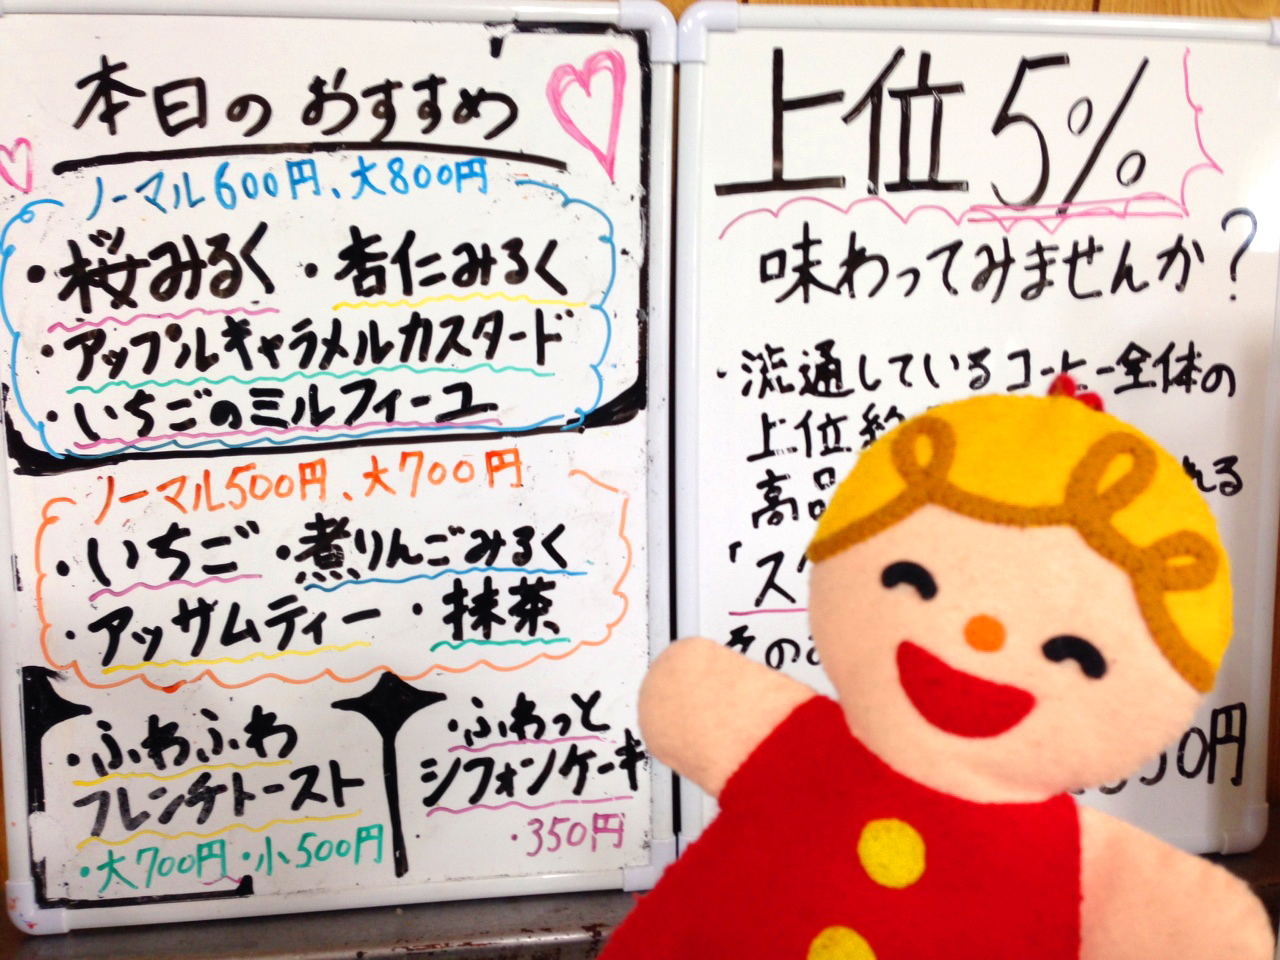 本日のおすすめ
ノーマル600円、大800円
・桜みるく ・杏仁みるく
・アップルキャラメルカスタード
・いちごのミルフィーユ
ノーマル500円、大700円
・いちご ・煮りんごみるく
・アッサムティー ・抹茶
・ふわふわ
フレンチトースト
・大700円・小500円
・ふわっと
シフォンケーキ
・350円
上位5%
味わってみませんか?
・流通しているコーヒー全体の
上位約
高品 れる
「ス
その
50円